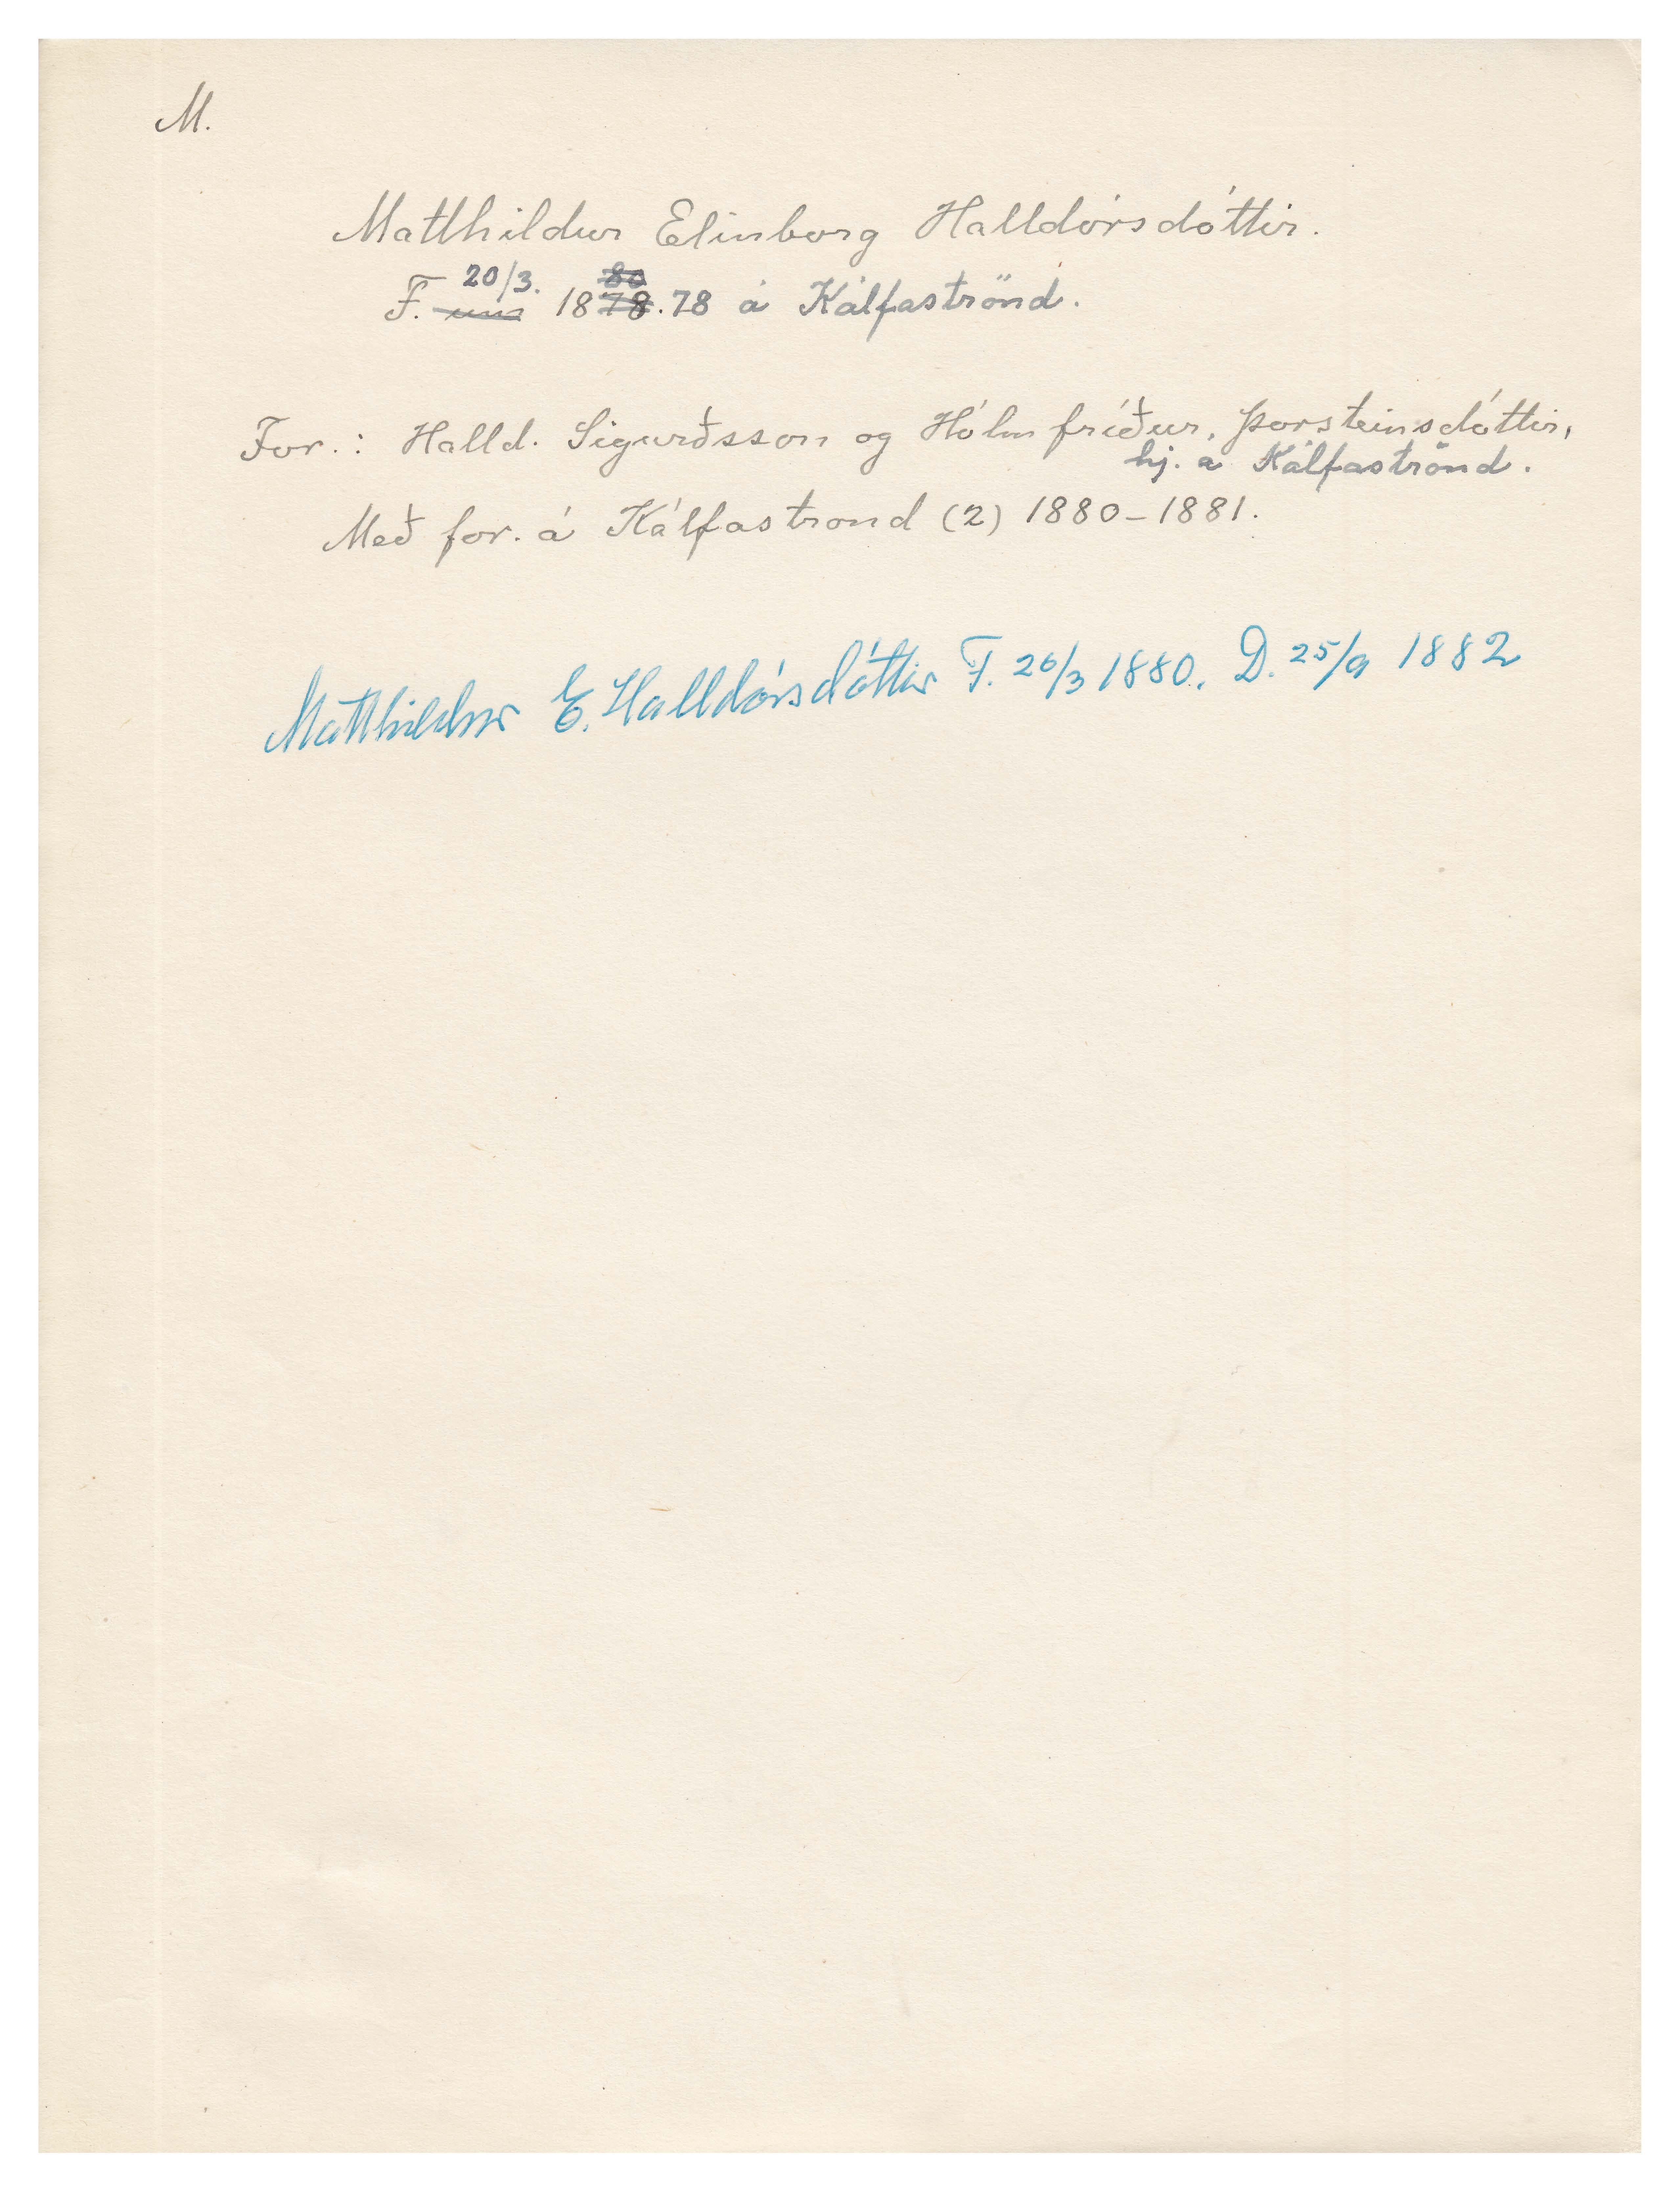 M.
Matthildur Elinborg Halldórsdóttir.
F. um 20/3. 1878 80.78 á Kálfaströnd.
For.: Halld. Sigurðsson og Hólmfríður, Þorsteinsdóttir,
hj. á Kálfaströnd.
Með for. á Kálfastrond (2) 1880-1881.
Matthildur E. Halldórsdóttir F. 20/3 1880. D. 25/9 1882